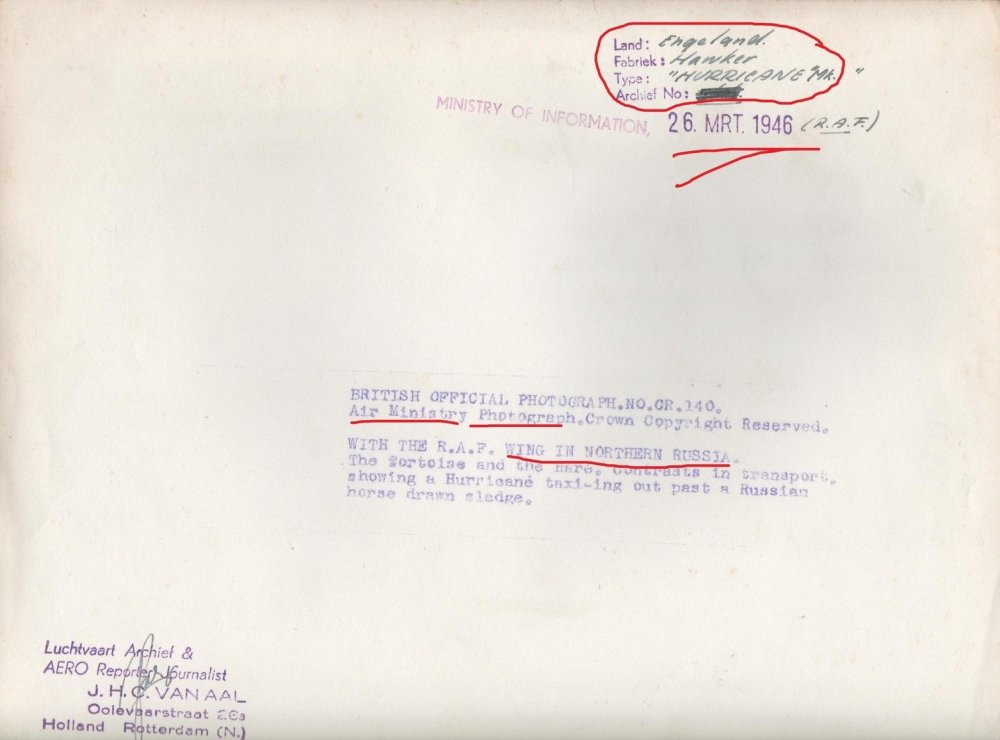 Land: Engeland.
Fabriek: Hawker
Type: "HURRICANE" Mk. "
Archief No:
MINISTRY OF INFORMATION,
26. MRT. 1946 (R.A.F.)
BRITISH OFFICIAL PHOTOGRAPH.NO.CR.140.
Air Ministry Photograph.Crown Copyright Reserved.
WITH THE R.A.F. WING IN NORTHERN RUSSIA.
The Tortoise and the Hare. Contrasts in transport.
showing a Hurricane taxi-ing out past a Russian
horse drawn sledge.
Luchtvaart Archief &
AERO Reporter Journalist
J. H. C. VAN AAL
Oolevaarstraat 26a
Holland Rotterdam (N.)